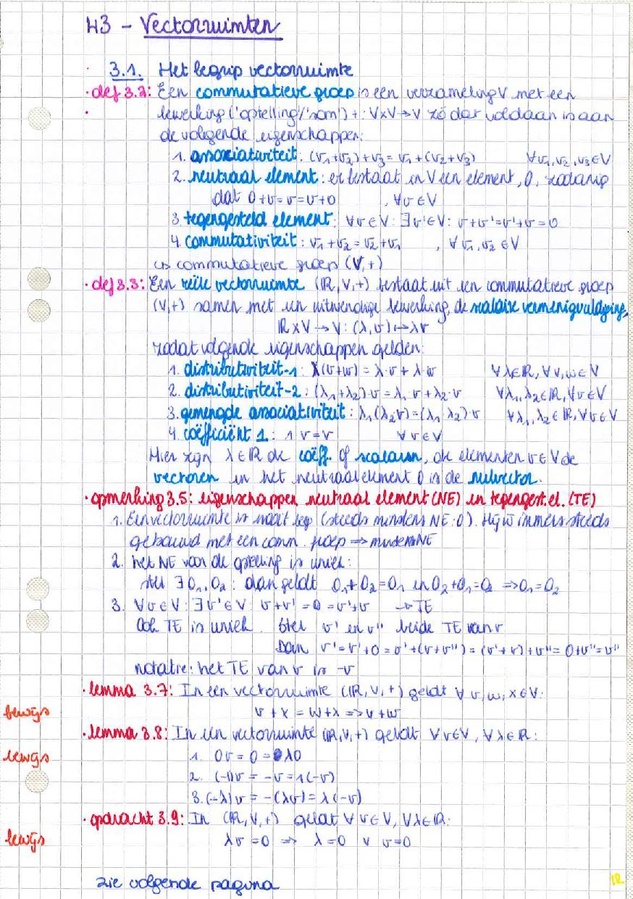 H3 - Vectorruimten
3.1. Het begrip vectorruimte
• def 3.2: Een commutatieve groep is een verzameling V met een
bewerking ('optelling'/'som') + : V×V→V zó dat voldaan is aan
de volgende eigenschappen:
1. associativiteit: (v₁+v₂)+v₃ = v₁+(v₂+v₃) ∀v₁,v₂,v₃∈V
2. neutraal element: er bestaat in V een element, 0, zodanig
dat 0+v=v=v+0 , ∀v∈V
3. tegengesteld element: ∀v∈V: ∃v'∈V: v+v'=v'+v=0
4. commutativiteit: v₁+v₂=v₂+v₁ , ∀v₁,v₂∈V
↳ commutatieve groep (V,+)
• def 3.3: Een reële vectorruimte (ℝ,V,+) bestaat uit een commutatieve groep
(V,+) samen met een uitwendige bewerking, de scalaire vermenigvuldiging,
ℝ×V→V: (λ,v)↦λv
zodat volgende eigenschappen gelden:
1. distributiviteit-1: λ(v+w)=λ·v+λ·w ∀λ∈ℝ, ∀v,w∈V
2. distributiviteit-2: (λ₁+λ₂)·v=λ₁·v+λ₂·v ∀λ₁,λ₂∈ℝ, ∀v∈V
3. gemengde associativiteit: λ₁(λ₂v)=(λ₁λ₂)v ∀λ₁,λ₂∈ℝ, ∀v∈V
4. coëfficiënt 1: 1·v=v ∀v∈V
Hier zijn λ∈ℝ de coëff. of scalairn, de elementen v∈V de
vectoren en het neutraal element 0 is de nulvector.
• opmerking 3.5: eigenschappen neutraal element (NE) en tegengest. el. (TE)
1. Een vectorruimte is nooit leeg (steeds minstens NE: 0). Hij is immers steeds
gebouwd met een comm. groep ⇒ minstens NE
2. het NE voor de optelling is uniek:
stel ∃0₁,0₂: dan geldt 0₁+0₂=0₁ en 0₂+0₁=0₂ ⇒0₁=0₂
3. ∀v∈V: ∃v'∈V v+v'=0=v'+v →TE
Ook TE is uniek. Stel v' en v'' beide TE van v
Dan v'=v'+0=v'+(v+v'')=(v'+v)+v''=0+v''=v''
notatie: het TE van v is -v
• lemma 3.7: In een vectorruimte (ℝ,V,+) geldt ∀v,w,x∈V:
bewijs v+x=w+x⇒v=w
• lemma 3.8: In een vectorruimte (ℝ,V,+) geldt ∀v∈V, ∀λ∈ℝ:
bewijs 1. 0v=0=λ0
2. (-1)v=-v=1(-v)
3. (-λ)v=-(λv)=λ(-v)
• opdracht 3.9: In (ℝ,V,+) geldt ∀v∈V, ∀λ∈ℝ:
bewijs λv=0 ⇒ λ=0 ∨ v=0
zie volgende pagina
12